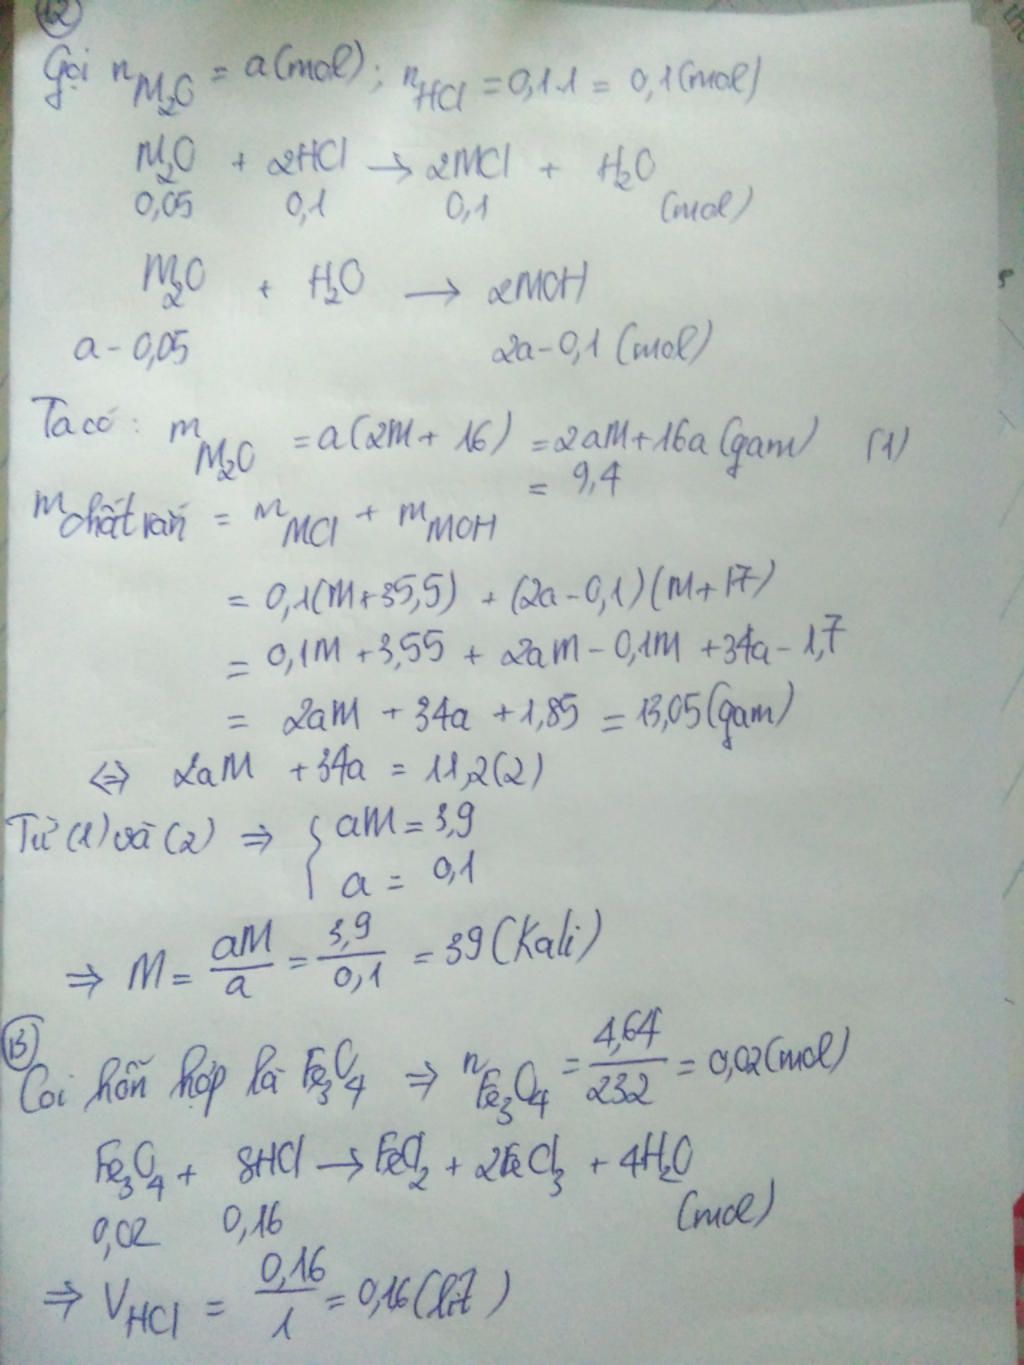 12
Gọi nM₂O = a(mol); nHCl = 0,1.1 = 0,1(mol)
M₂O + 2HCl → 2MCl + H₂O
0,05 0,1 0,1 (mol)
M₂O + H₂O → 2MOH
a-0,05 2a-0,1(mol)
Ta có: mM₂O = a(2M+16) = 2aM+16a(gam) (1)
= 9,4
mchất rắn = mMCl + mMOH
= 0,1(M+35,5) + (2a-0,1)(M+17)
= 0,1M + 3,55 + 2aM - 0,1M + 34a - 1,7
= 2aM + 34a + 1,85 = 13,05(gam)
⇔ 2aM + 34a = 11,2(2)
Từ (1) và (2) ⇒ { aM = 3,9
a = 0,1
⇒ M = aM/a = 3,9/0,1 = 39(Kali)
13
Coi hỗn hợp là Fe₃O₄ ⇒ nFe₃O₄ = 4,64/232 = 0,02(mol)
Fe₃O₄ + 8HCl → FeCl₂ + 2FeCl₃ + 4H₂O
0,02 0,16 (mol)
⇒ VHCl = 0,16/1 = 0,16(lít)